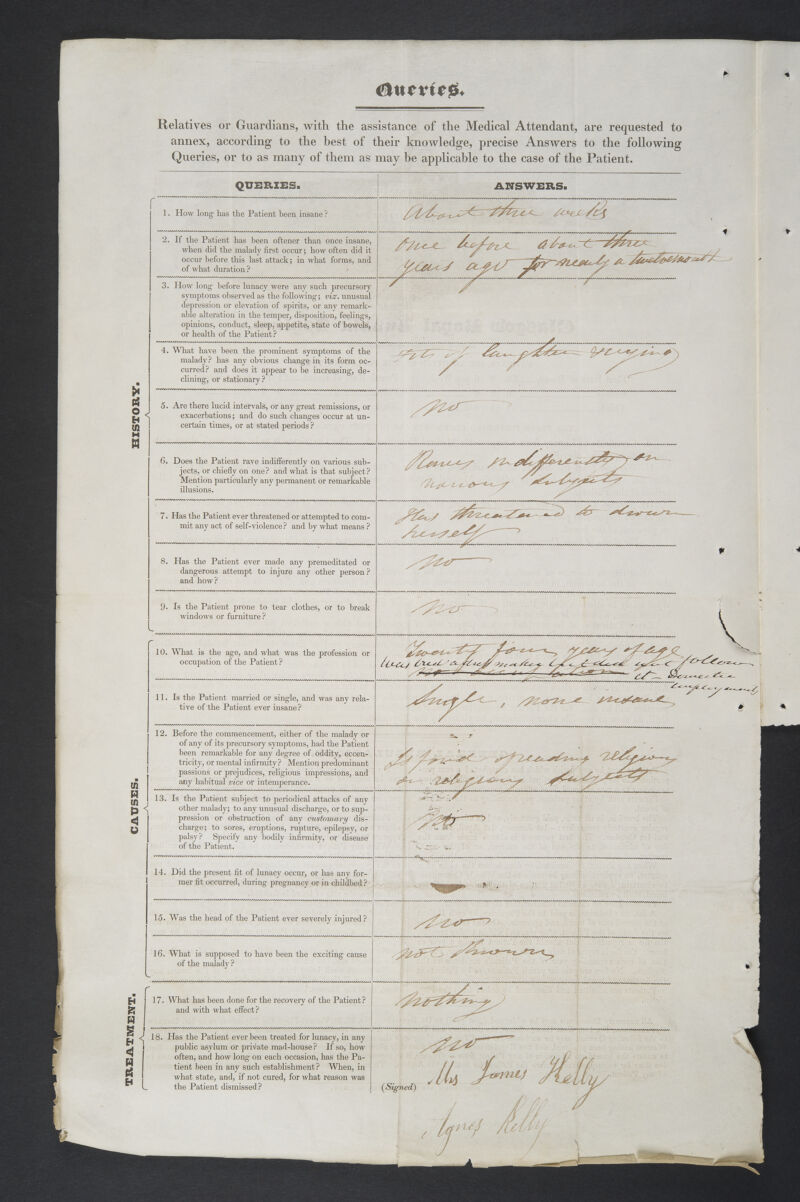 Queries.
Relatives or Guardians, with the assistance of the Medical Attendant, are requested to
annex, according to the best of their knowledge, precise Answers to the following
Queries, or to as many of them as may be applicable to the case of the Patient.
QUERIES.
ANSWERS.
HISTORY.
1. How long has the Patient been insane?
About three weeks
2. If the Patient has been oftener than once insane,
when did the malady first occur; how often did it
occur before this last attack; in what forms, and
of what duration?
Once before about three
years ago for nearly a twelvemonth
3. How long before lunacy were any such precursory
symptoms observed as the following; viz. unusual
depression or elevation of spirits, or any remark-
able alteration in the temper, disposition, feelings,
opinions, conduct, sleep, appetite, state of bowels,
or health of the Patient?
4. What have been the prominent symptoms of the
malady? has any obvious change in its form oc-
curred? and does it appear to be increasing, de-
clining, or stationary?
fits of laughter & crying
5. Are there lucid intervals, or any great remissions, or
exacerbations; and do such changes occur at un-
certain times, or at stated periods?
No
6. Does the Patient rave indifferently on various sub-
jects, or chiefly on one? and what is that subject?
Mention particularly any permanent or remarkable
illusions.
Raves indifferently on
various subjects
7. Has the Patient ever threatened or attempted to com-
mit any act of self-violence? and by what means?
Has threatened to drown
herself
8. Has the Patient ever made any premeditated or
dangerous attempt to injure any other person?
and how?
No
9. Is the Patient prone to tear clothes, or to break
windows or furniture?
No
CAUSES.
10. What is the age, and what was the profession or
occupation of the Patient?
Twenty four years of age
Was bred a dress maker but did not follow
it Domestic
employment
11. Is the Patient married or single, and was any rela-
tive of the Patient ever insane?
Single, none insane
12. Before the commencement, either of the malady or
of any of its precursory symptoms, had the Patient
been remarkable for any degree of oddity, eccen-
tricity, or mental infirmity? Mention predominant
passions or prejudices, religious impressions, and
any habitual vice or intemperance.
Is fond of reading religious
or religious subjects
13. Is the Patient subject to periodical attacks of any
other malady; to any unusual discharge, or to sup-
pression or obstruction of any customary dis-
charge; to sores, eruptions, rupture, epilepsy, or
palsy? Specify any bodily infirmity, or disease
of the Patient.
No
14. Did the present fit of lunacy occur, or has any for-
mer fit occurred, during pregnancy or in childbed?
15. Was the head of the Patient ever severely injured?
No
16. What is supposed to have been the exciting cause
of the malady?
not known
TREATMENT.
17. What has been done for the recovery of the Patient?
and with what effect?
Nothing
18. Has the Patient ever been treated for lunacy, in any
public asylum or private mad-house? If so, how
often, and how long on each occasion, has the Pa-
tient been in any such establishment? When, in
what state, and, if not cured, for what reason was
the Patient dismissed?
No
(Signed) Mrs James Kelly
Agnes Kelly